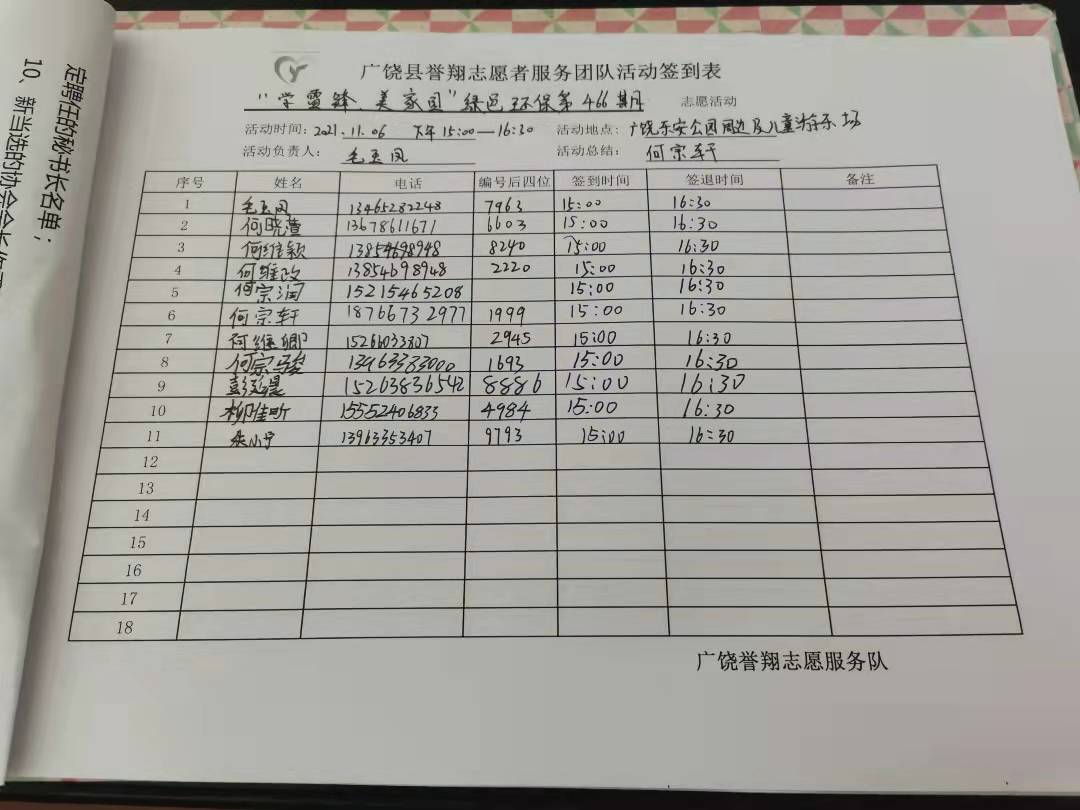 定聘任的秘书长名单：
10、新当选的协会会长
广饶县誉翔志愿者服务团队活动签到表
"学雷锋 美家园"绿色环保第466期 志愿活动
活动时间：2021.11.06 下午15:00—16:30 活动地点：广饶乐安公园周边及儿童游乐场
活动负责人：毛玉凤 活动总结：何宗轩
序号 姓名 电话 编号后四位 签到时间 签退时间 备注
1 毛玉凤 13465282248 7963 15:00 16:30
2 何晓萱 13678611671 6603 15:00 16:30
3 何维颖 13854698948 8240 15:00 16:30
4 何维政 13854698948 2220 15:00 16:30
5 何宗润 15215465208 15:00 16:30
6 何宗轩 18766732977 1999 15:00 16:30
7 何继卿 15266033807 2945 15:00 16:30
8 何宗骏 13963383000 1693 15:00 16:30
9 15263836542 8886 15:00 16:30
10 柳佳昕 15552406833 4984 15:00 16:30
11 张小宁 13963353407 9793 15:00 16:30
12
13
14
15
16
17
18
广饶誉翔志愿服务队